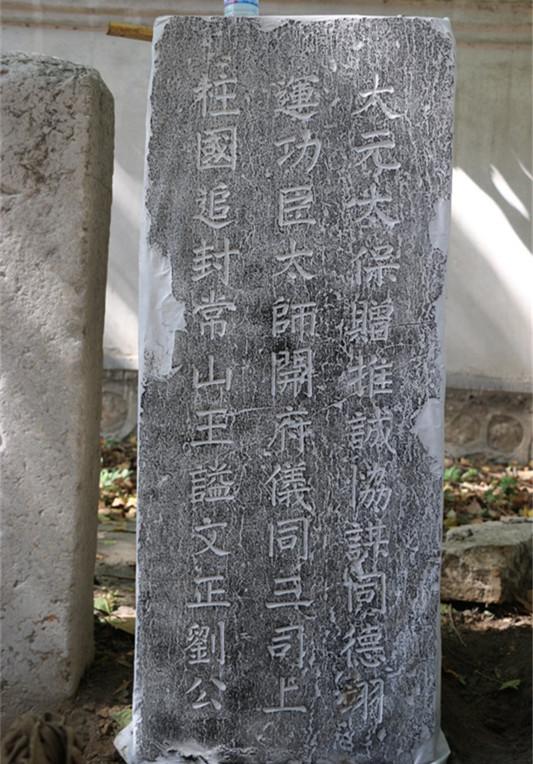 大元太保贈推誠協謀同德翊
運功臣太師開府儀同三司上
柱國追封常山王謚文正劉公